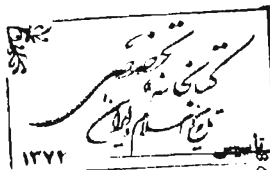 کتابخانه تخصصی
تاریخ اسلام و ایران
تأسیس
۱۳۷۲